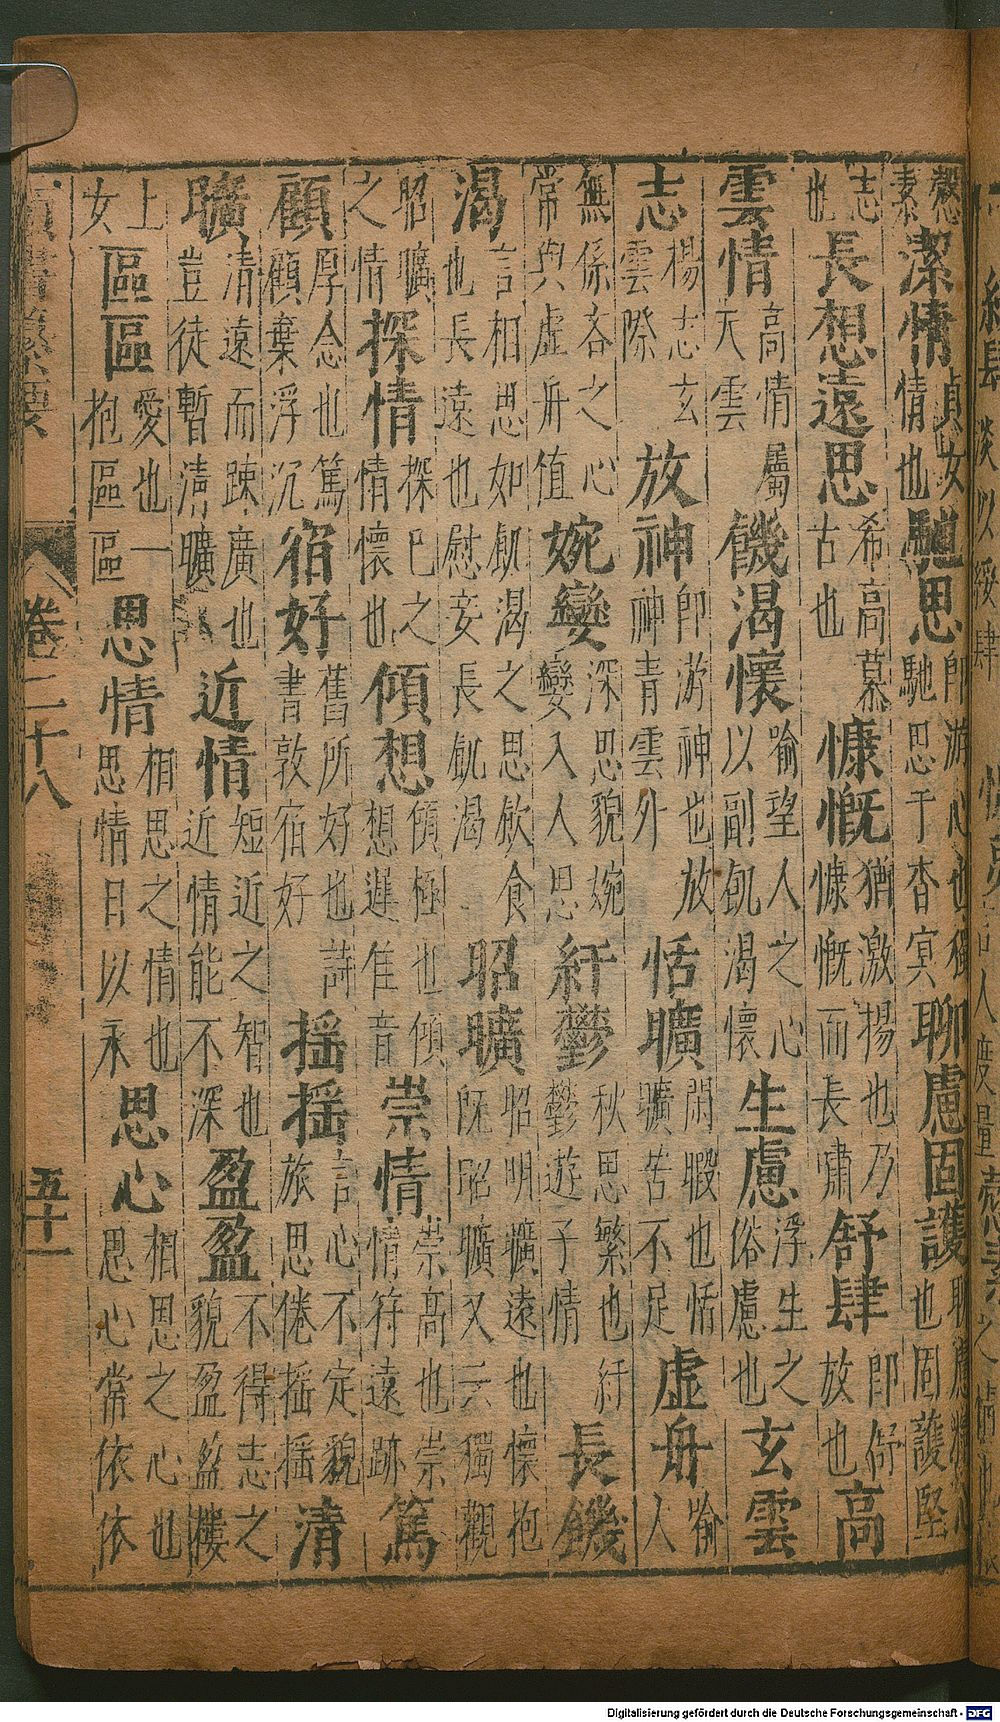 慤素潔情貞女情也馳思即游心也獨馳思于杳冥聊慮固護聊慮精心也固護堅
志也長想遠思希高慕古也慷慨猶激揚也乃慷慨而長嘯舒肆即舒放也高
雲情高情屬天雲饑渴懷喻望人之心以副飢渴懷生慮浮生之俗慮也玄雲
志楊志玄雲際放神即游神也放神青雲外恬曠閑暇也恬曠苦不足虛舟喻人
無係吝之心常與虛舟值婉孌深思貌婉孌入人思紆鬱秋思繁也紆鬱遊子情長饑
渴言相思如飢渴之思飲食也長遠也慰妾長飢渴昭曠昭明曠遠也懷抱既昭曠又云獨觀
昭曠之情探情探已之情懷也傾想傾極也傾想遲隹音崇情崇高也崇情符遠跡篤
顧厚念也篤顧棄浮沉宿好舊所好也詩書敦宿好揺揺言心不定貌旅思倦揺揺清
曠清遠而踈廣也豈徒暫清曠近情短近之智也近情能不深盈盈不得志之貌盈盈樓
上女區區愛也一抱區區思情相思之情也思情日以永思心相思之心也思心常依依
卷二十八 五十一
Digitalisierung gefördert durch die Deutsche Forschungsgemeinschaft - DFG